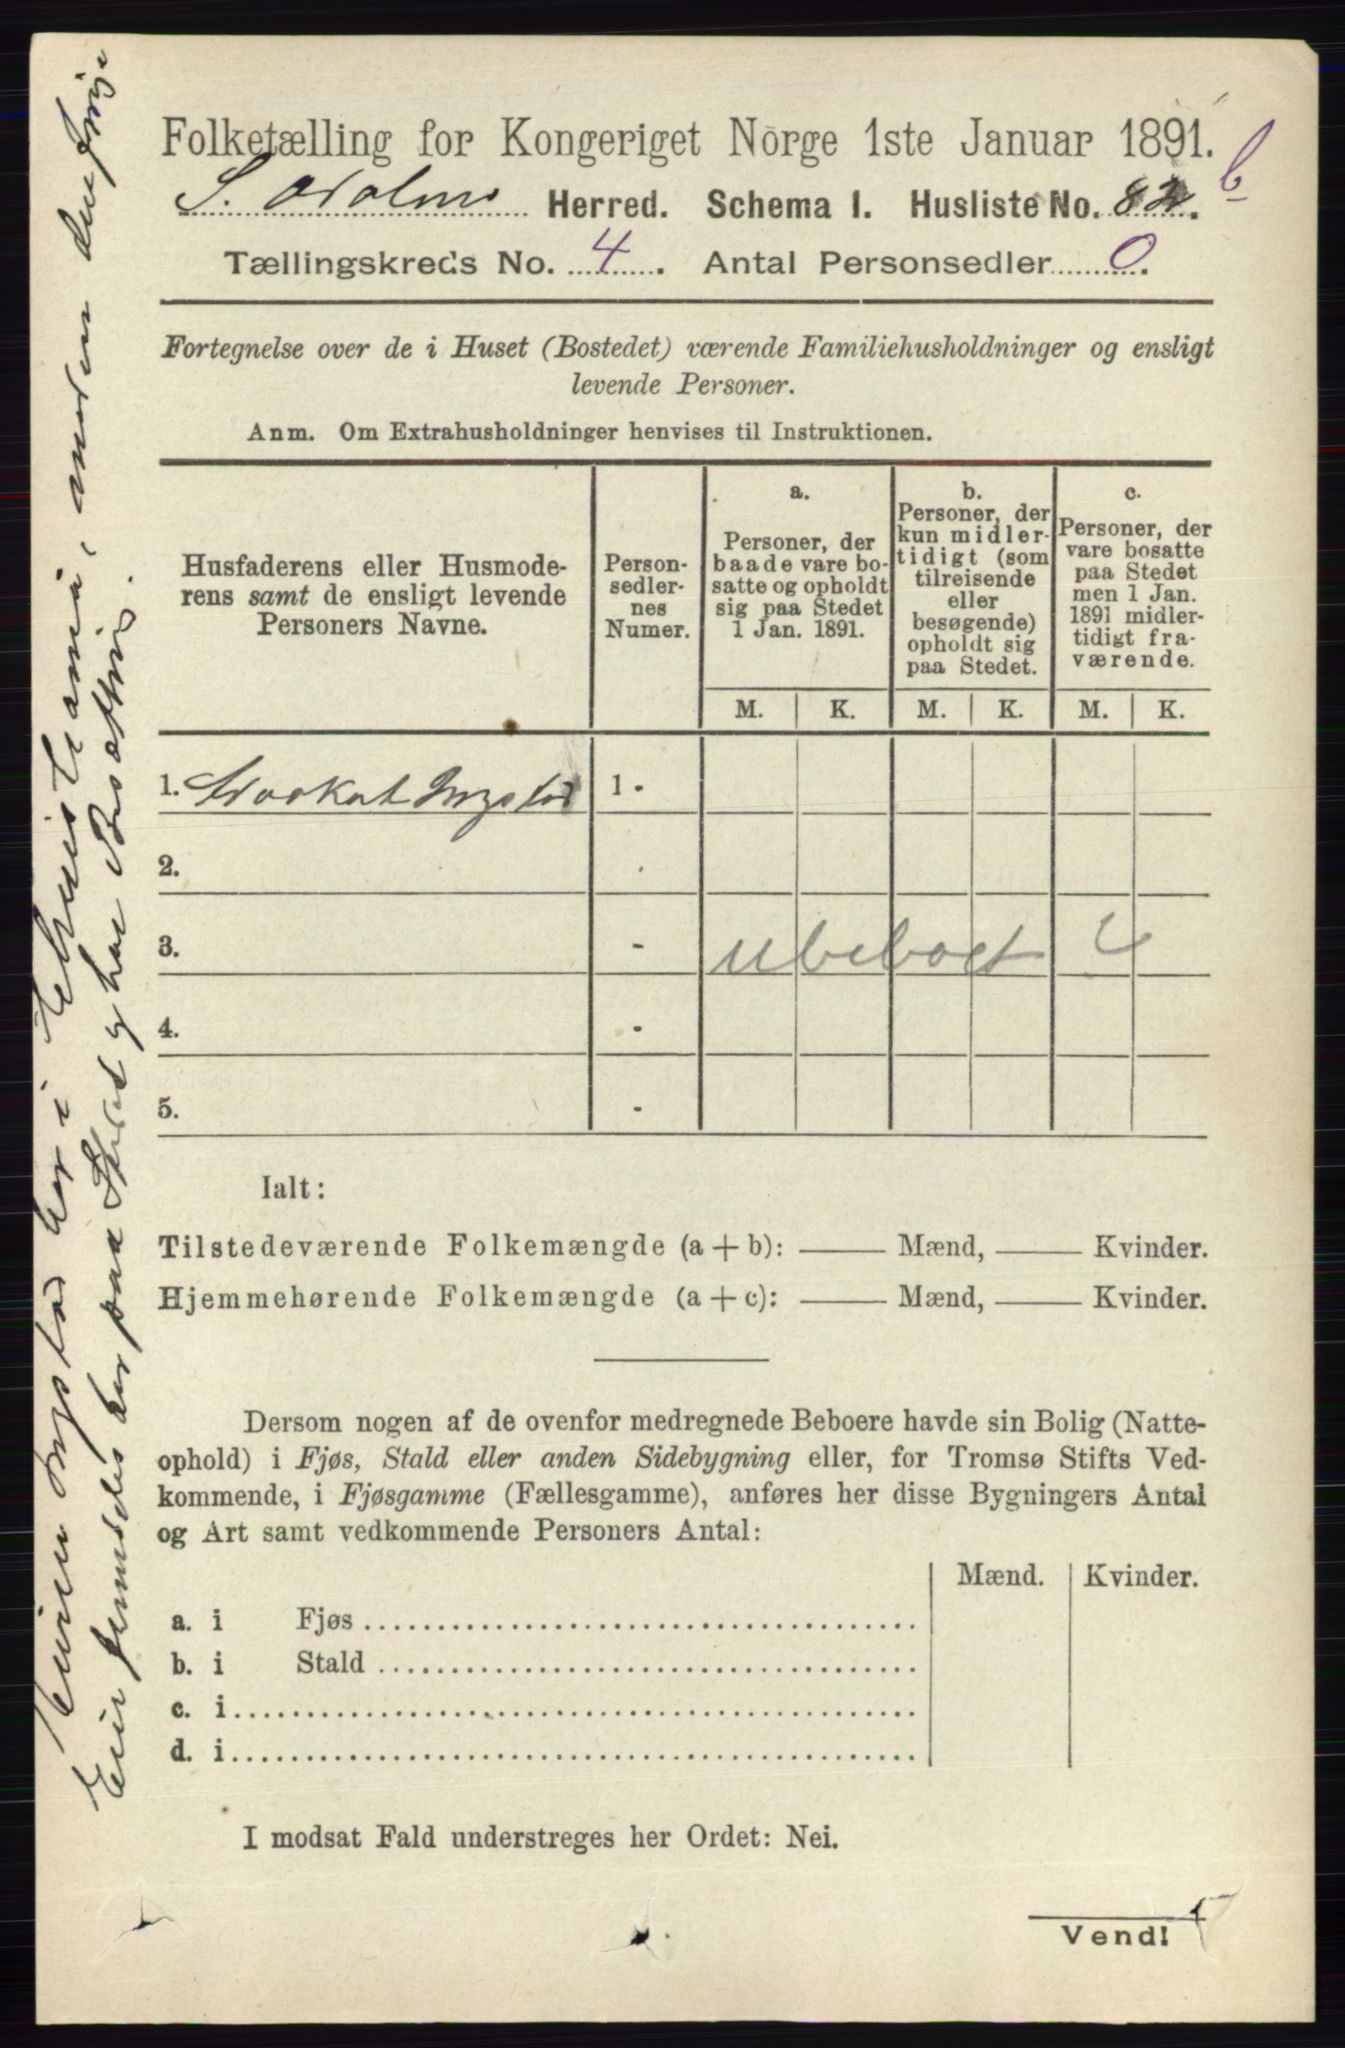 Folketælling for Kongeriget Norge 1ste Januar 1891.
S. Odalens Herred. Schema I. Husliste No. 82 b
Tællingskreds No. 4. Antal Personsedler 0.
Fortegnelse over de i Huset (Bostedet) værende Familiehusholdninger og ensligt
levende Personer.
Anm. Om Extrahusholdninger henvises til Instruktionen.
Husfaderens eller Husmode-
rens samt de ensligt levende
Personers Navne.
Person-
sedler-
nes
Numer.
a.
Personer, der
baade vare bo-
satte og opholdt
sig paa Stedet
1 Jan. 1891.
b.
Personer, der
kun midler-
tidigt (som
tilreisende
eller
besøgende)
opholdt sig
paa Stedet.
c.
Personer, der
vare bosatte
paa Stedet
men 1 Jan.
1891 midler-
tidigt fra-
værende.
M. K. M. K. M. K.
1. Advokat 1.
2.
3. - ubeboet
4. -
5. -
Ialt:
Tilstedeværende Folkemængde (a + b): —— Mænd, —— Kvinder.
Hjemmehørende Folkemængde (a + c): —— Mænd, —— Kvinder.
Dersom nogen af de ovenfor medregnede Beboere havde sin Bolig (Natte-
ophold) i Fjøs, Stald eller anden Sidebygning eller, for Tromsø Stifts Ved-
kommende, i Fjøsgamme (Fællesgamme), anføres her disse Bygningers Antal
og Art samt vedkommende Personers Antal:
Mænd. Kvinder.
a. i Fjøs
b. i Stald
c. i
d. i
I modsat Fald understreges her Ordet: Nei.
Vend!
bor i Christiania, medens den øvrige
paa Sted og har Besætning.